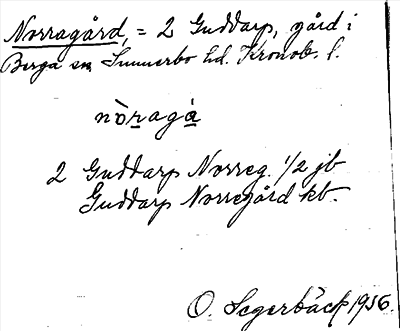 Norragård, = 2 Guddarp, gård i
Berga sn Sunnerbo hd. Kronob. l.
nòragá
2 Guddarp Norreg. 1/2 jb
Guddarp Norregård kb.
O. Segerbäck 1936.